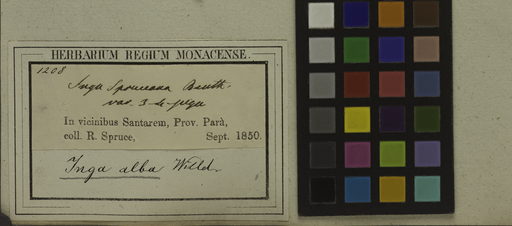 HERBARIUM REGIUM MONACENSE.
1208
Inga Spruceana Benth.
var. 3-4-juga
In vicinibus Santarem, Prov. Parà,
coll. R. Spruce, Sept. 1850.
Inga alba Willd.